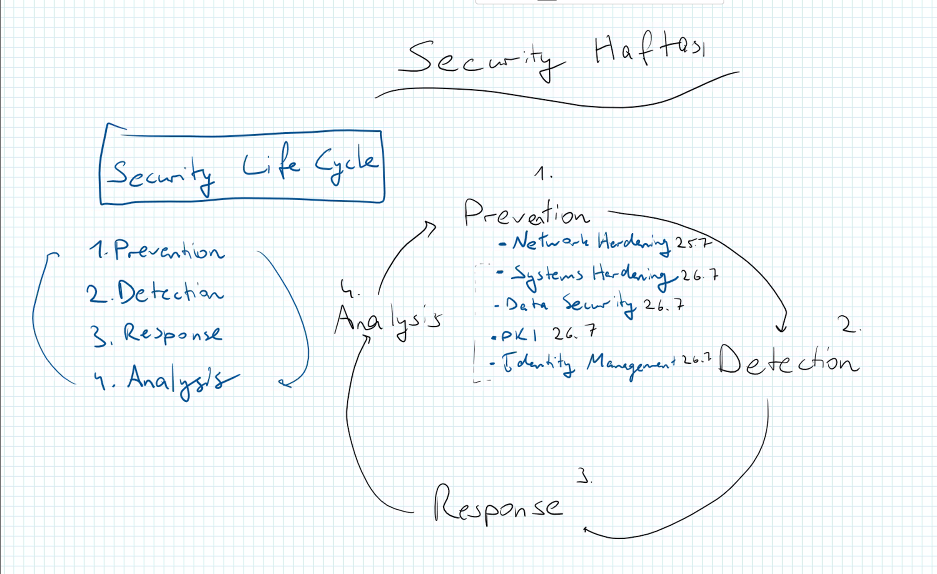 Security Haftası
Security Life Cycle
1. Prevention
2. Detection
3. Response
4. Analysis
1.
Prevention
- Network Herdening 25.7
- Systems Herdening 26.7
- Data Security 26.7
- PKI 26.7
- Identity Management 26.7
2.
Detection
3.
Response
4.
Analysis